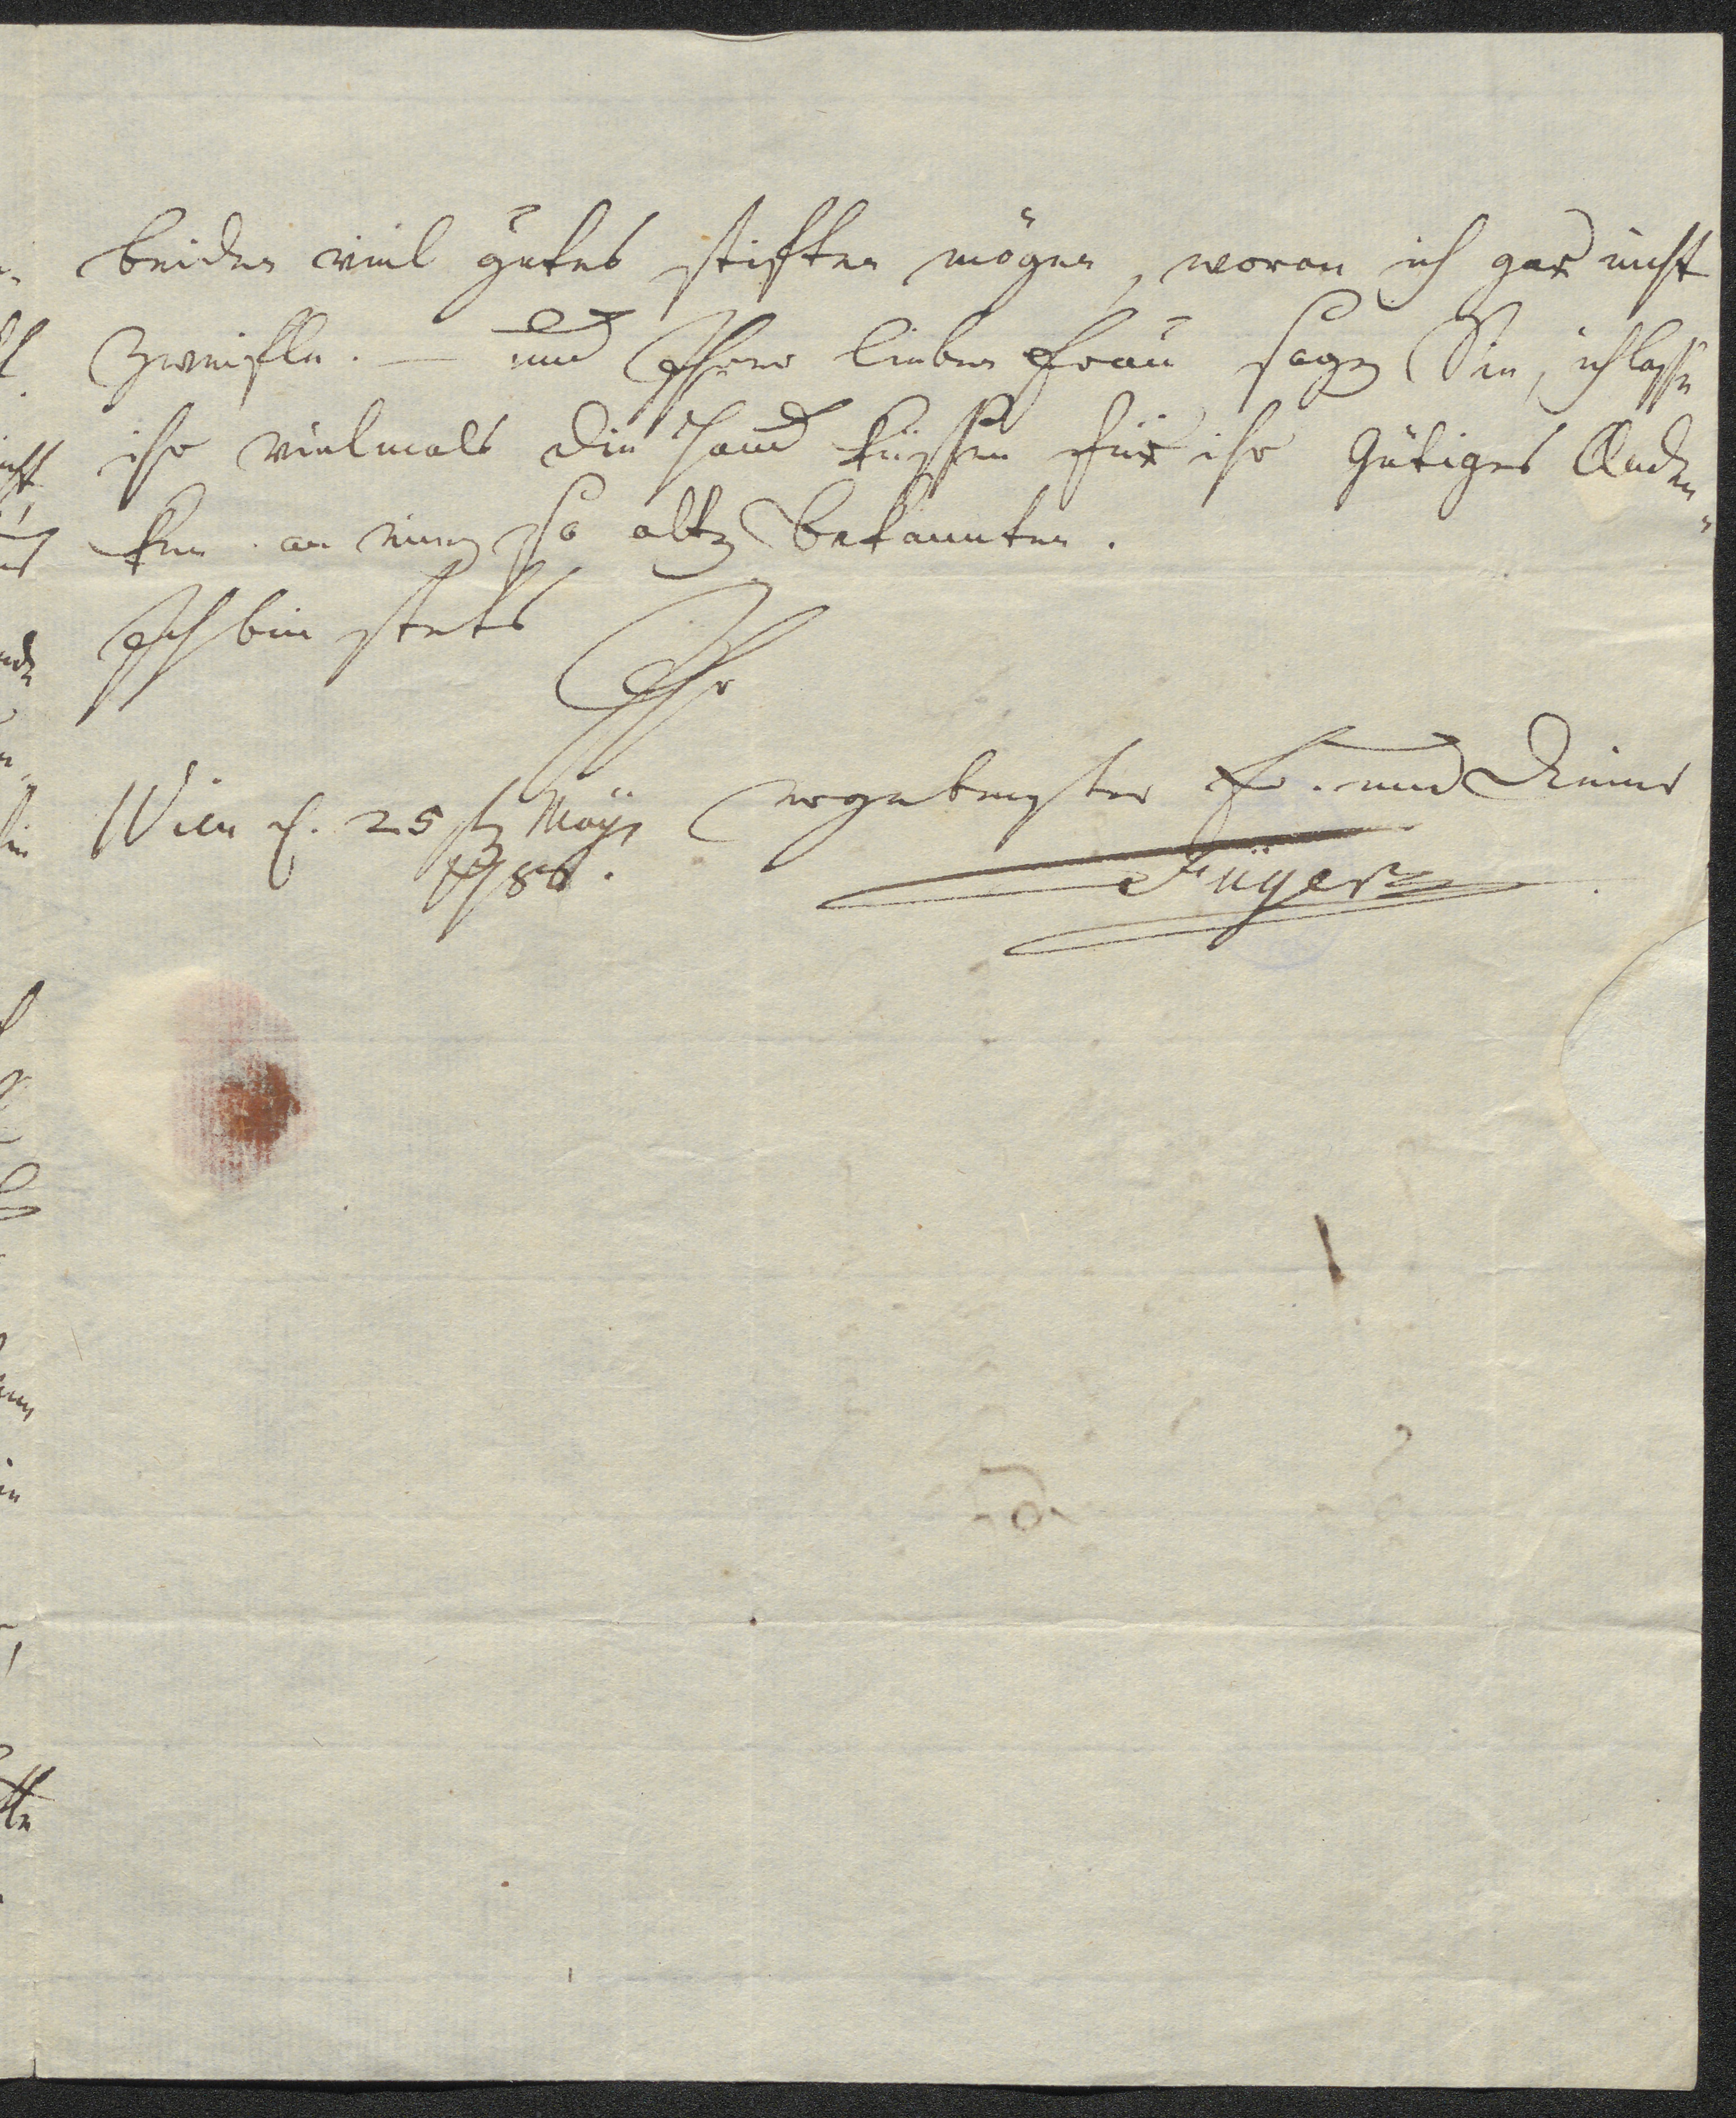 beiden viel gutes stiften möge, woran ich gar nicht
Zweifle. — und Ihrer lieben Frau sagen Sie, ich lasse
ihr vielmals die Hand küssen für ihr Gütiges Anden"
ken an einen so alten Bekannten.
Ich bin stets
Ihr
ergebenster Fr. und Diener
Wien d. 25ten May
1786.
Füger